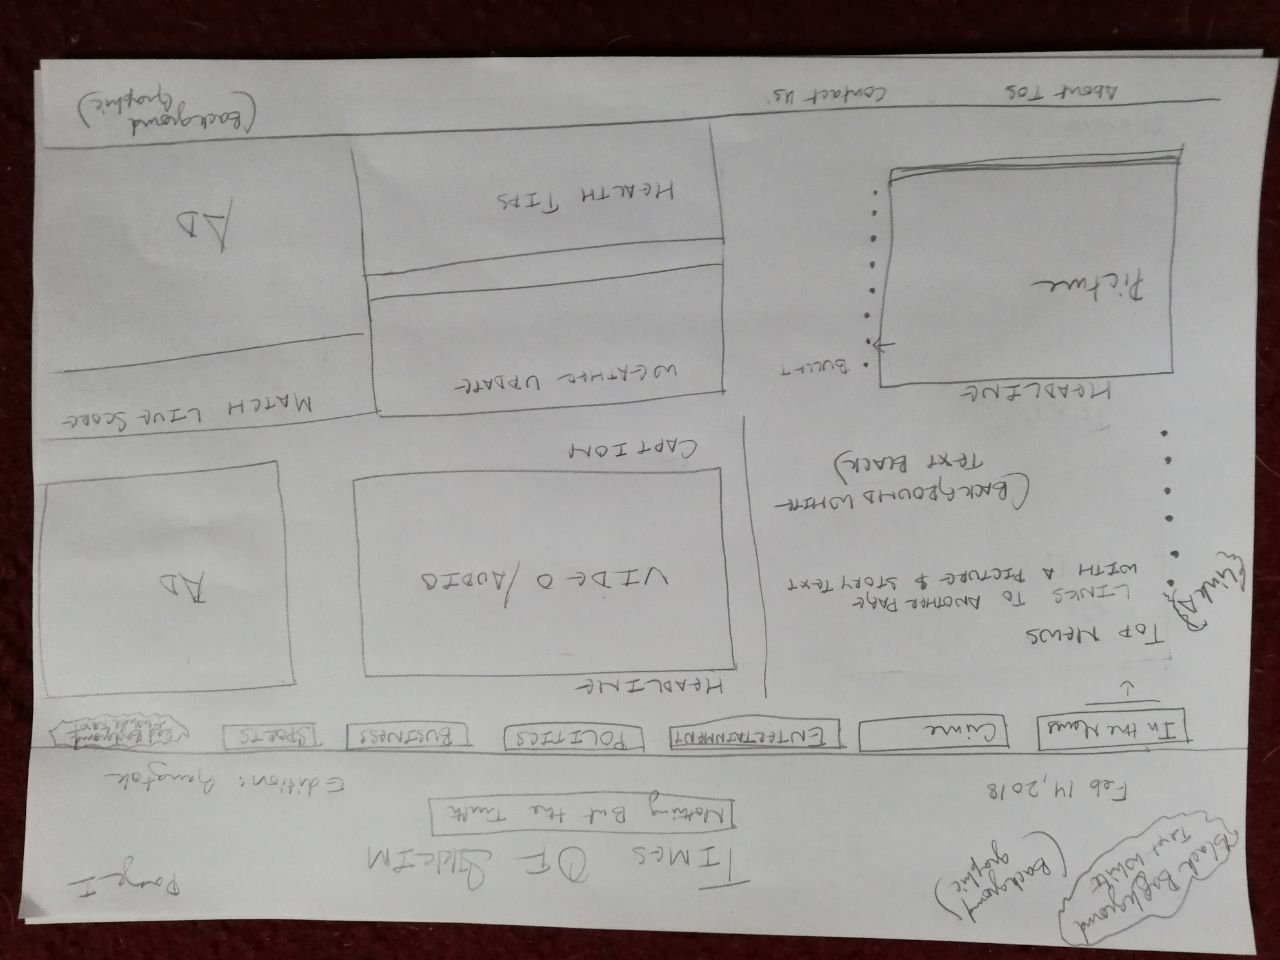 Black Background
Text White
(Background
graphic)
TIMES OF SIKKIM
Page I
Nothing But the Truth
Feb 14, 2018
Edition: Gangtok
In the News
Crime
ENTERTAINMENT
POLITICS
BUSINESS
SPORTS
Red Background
White Text
TOP NEWS
{Link A}
LINKS TO ANOTHER PAGE
WITH A PICTURE & STORY TEXT
(BACKGROUND WHITE
TEXT BLACK)
HEADLINE
VIDEO/AUDIO
CAPTION
AD
HEADLINE
Picture
BULLET
WEATHER UPDATE
HEALTH TIPS
MATCH LIVE SCORE
AD
About TOS
Contact Us
(Background
Graphic)